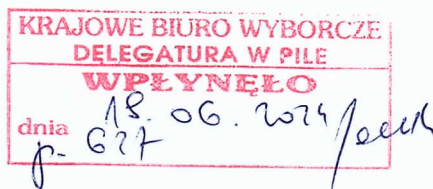 KRAJOWE BIURO WYBORCZE
DELEGATURA W PILE
WPŁYNĘŁO
dnia 18. 06. 2024
p. 627